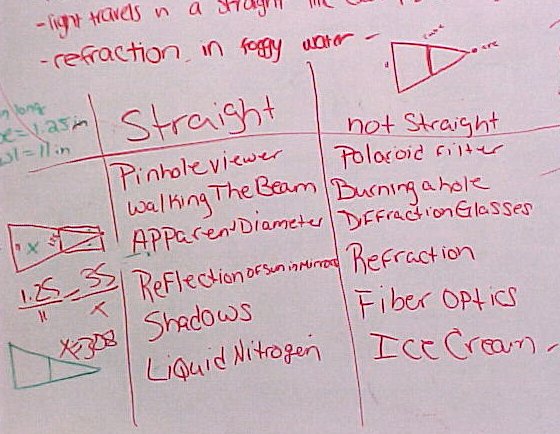 -light travels in a straight
-refraction in foggy water -
long
= 1.25in
= 11in
Straight
not Straight
Pinhole viewer
Polaroid Filter
Walking The Beam
Burning a hole
Apparent Diameter
Diffraction Glasses
x
Reflection of sun in Mirror
Refraction
1.25 = 35
11 x
Shadows
Fiber Optics
x=308
Liquid Nitrogen
Ice Cream